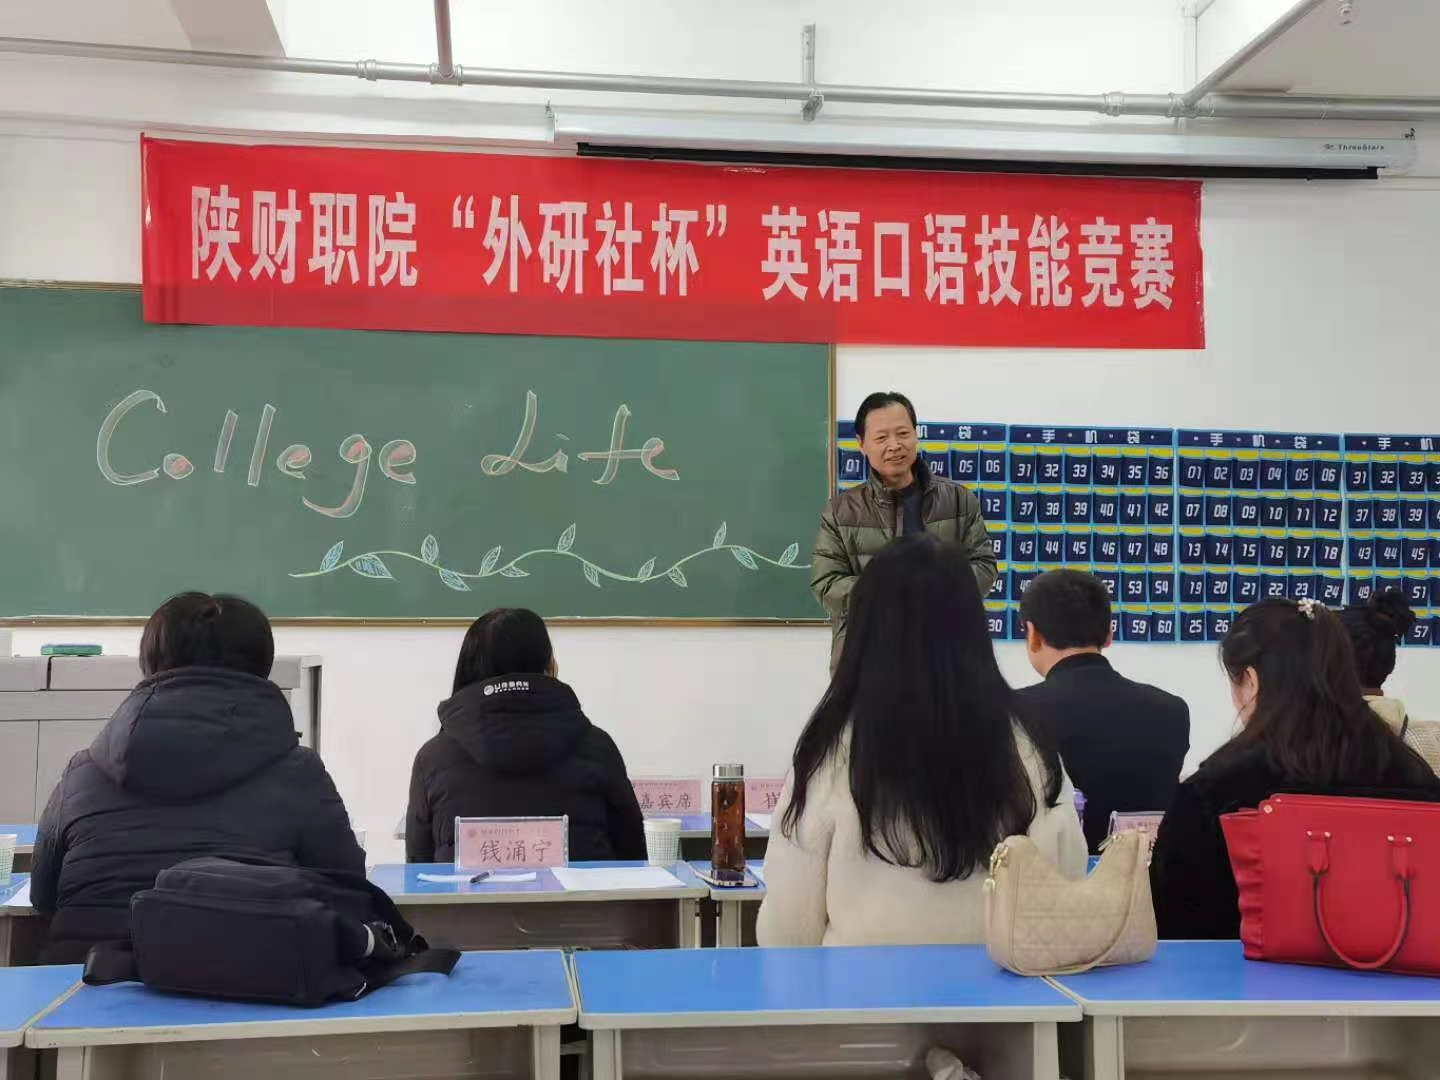 陕财职院“外研社杯”英语口语技能竞赛
ThreeStars
College Life
机 袋
手 机 袋
手 机 袋
手 机
01 04 05 06
31 32 33 34 35 36
01 02 03 04 05 06
31 32 33
12
37 38 39 40 41 42
07 08 09 10 11 12
37 38 39
43 44 45 46 47 48
13 14 15 16 17 18
43 44 45
24
52 53 54
19 20 21 22 23 24
49 51
30
59 60
25 26
57
URBAN
嘉宾席
钱涌宁